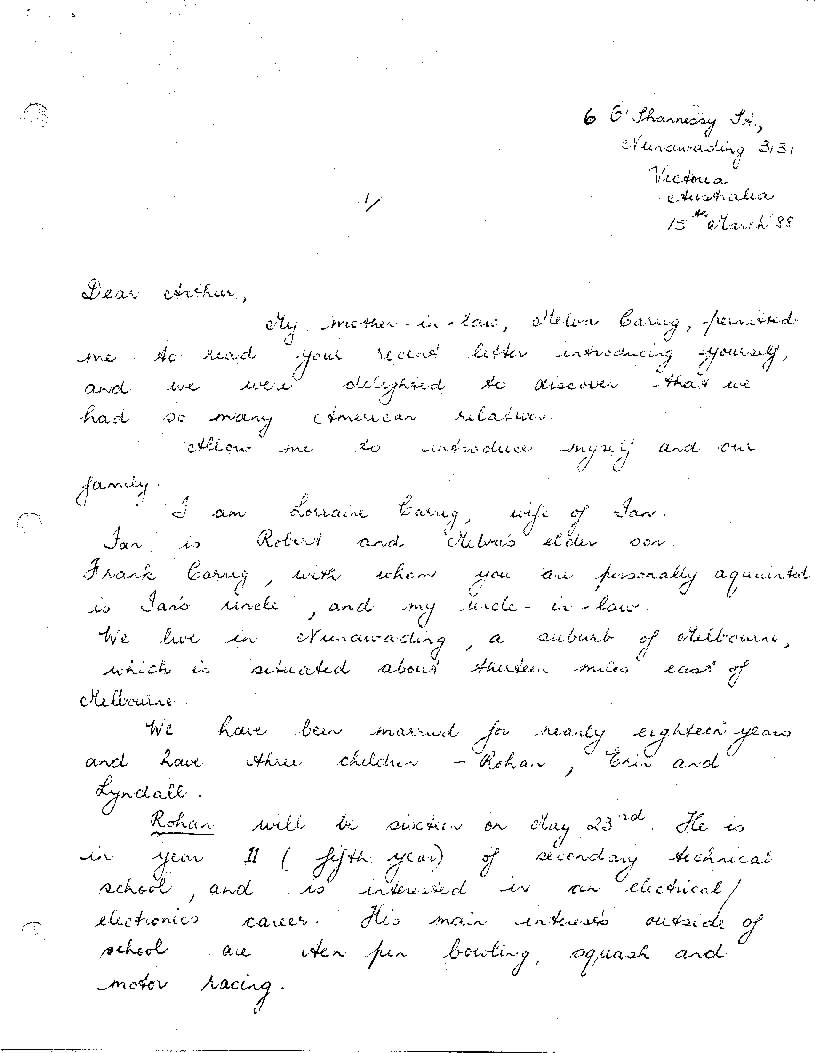 6 O'Shannessy St.,
Nunawading 3131
Victoria
Australia
1/
15th March '88
Dear Arthur,
My mother-in-law, Melva Carrig, permitted
me to read your recent letter introducing yourself,
and we were delighted to discover that we
had so many American relatives.
Allow me to introduce myself and our
family.
I am Lorraine Carrig, wife of Ian.
Ian is Robert and Melva's elder son.
Frank Carrig, with whom you are personally aquainted
is Ian's uncle, and my uncle-in-law.
We live in Nunawading, a suburb of Melbourne,
which is situated about thirteen miles east of
Melbourne.
We have been married for nearly eighteen years
and have three children - Rohan, Erin and
Lyndall.
Rohan will be sixteen on May 23rd. He is
in year 11 (fifth year) of secondary technical
school, and is interested in an electrical/
electronics career. His main interests outside of
school are ten pin bowling, squash and
motor racing.